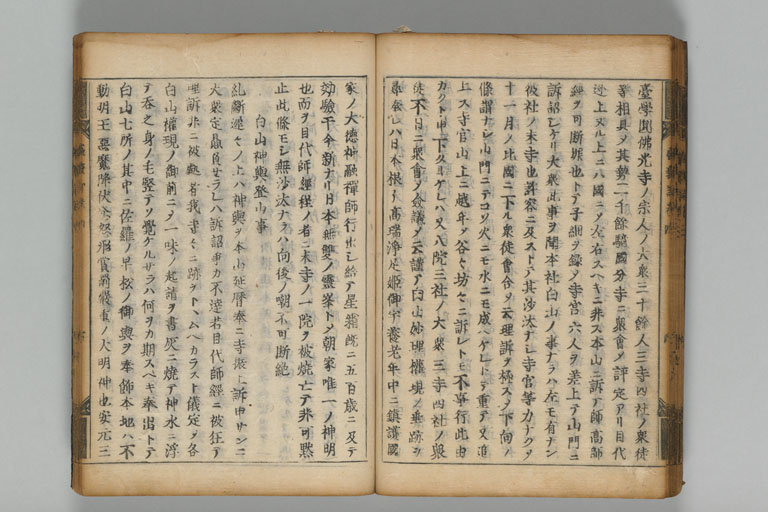 臺學圓佛光寺ノ宗人ノ大衆三十餘人三寺四社ノ衆徒
等相具〆其勢二千餘騎國分寺ニ衆會〆評定アリ目代
近上ヌル上ニハ國ニ〆左右スヘキニ非ス本山ニ訴テ師高師
經ヲ可断罪也トテ子細ヲ録〆寺官六人ヲ差上テ山門ニ
訴詔シケリ大衆此事ヲ聞本社白山ノ事ナラハ左モ有ナン
彼社ノ末寺也許容ニ及ストテ其沙汰ナシ寺官等力ナク〆
十一月ノ比國ニ下ル衆徒會合〆云理訴ヲ極ス〆下向ノ
條謂ナシ山門ニテコソ火ニモ水ニモ成ハケレトテ重テ又追
上ス寺官山上ニ越年〆谷々坊々ニ訴レトモ不事行此由
カクト申下タヨケレハ又八院三社ノ大衆三寺四社ノ
徒不日ニ衆會〆僉議〆云謹テ白山妙理權現ノ垂跡ヲ
尋奉レハ日本根子高瑞淨足姫御宇養老年中ニ鎮護國
家ノ大德神融禪師行出シ給テ星霜既ニ五百歳ニ及テ
効驗于今新ナリ日本無雙ノ靈峯トシテ朝家唯一ノ神明
也而ヲ目代師經程ノ者ニ末寺ノ一院ヲ被焼亡テ非可黙
止此條モシ無沙汰ナラハ向後ノ嘲不可断絶
白山神輿登山事
糺断遲々ノ上ハ神輿ヲ本山延暦奉ニ寺振上訴申サンニ
大衆定贔屓セラレハ訴詔爭カ不達若目代師經ニ被狂テ
理訴非ニ被處者我寺々ニ跡ヲトヽムヘカラスト議定〆各
白山權現ノ御前ニ〆一味ノ起請ヲ書灰ニ燒テ神水ニ浮
テ呑之身ノ毛竪テソ覺ケルサラハ何ヲカ期スヘキ奉出トテ
白山七所ノ其中ニ佐羅ノ早松ノ御輿ヲ奉餝本地ハ不
動明王惡魔降伏ノ大明神也安元三